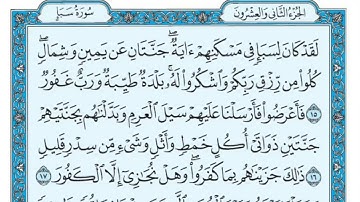 الجزء الثاني والعشرون سورة سبإ
لَقَدْ كَانَ لِسَبَإٍ فِي مَسْكَنِهِمْ ءَايَةٌ ۖ جَنَّتَانِ عَن يَمِينٍ وَشِمَالٍ ۖ
كُلُوا۟ مِن رِّزْقِ رَبِّكُمْ وَٱشْكُرُوا۟ لَهُۥ ۚ بَلْدَةٌ طَيِّبَةٌ وَرَبٌّ غَفُورٌ
١٥ فَأَعْرَضُوا۟ فَأَرْسَلْنَا عَلَيْهِمْ سَيْلَ ٱلْعَرِمِ وَبَدَّلْنَٰهُم بِجَنَّتَيْهِمْ
جَنَّتَيْنِ ذَوَاتَىْ أُكُلٍ خَمْطٍ وَأَثْلٍ وَشَىْءٍ مِّن سِدْرٍ قَلِيلٍ
١٦ ذَٰلِكَ جَزَيْنَٰهُم بِمَا كَفَرُوا۟ ۖ وَهَلْ نُجَٰزِىٓ إِلَّا ٱلْكَفُورَ ١٧